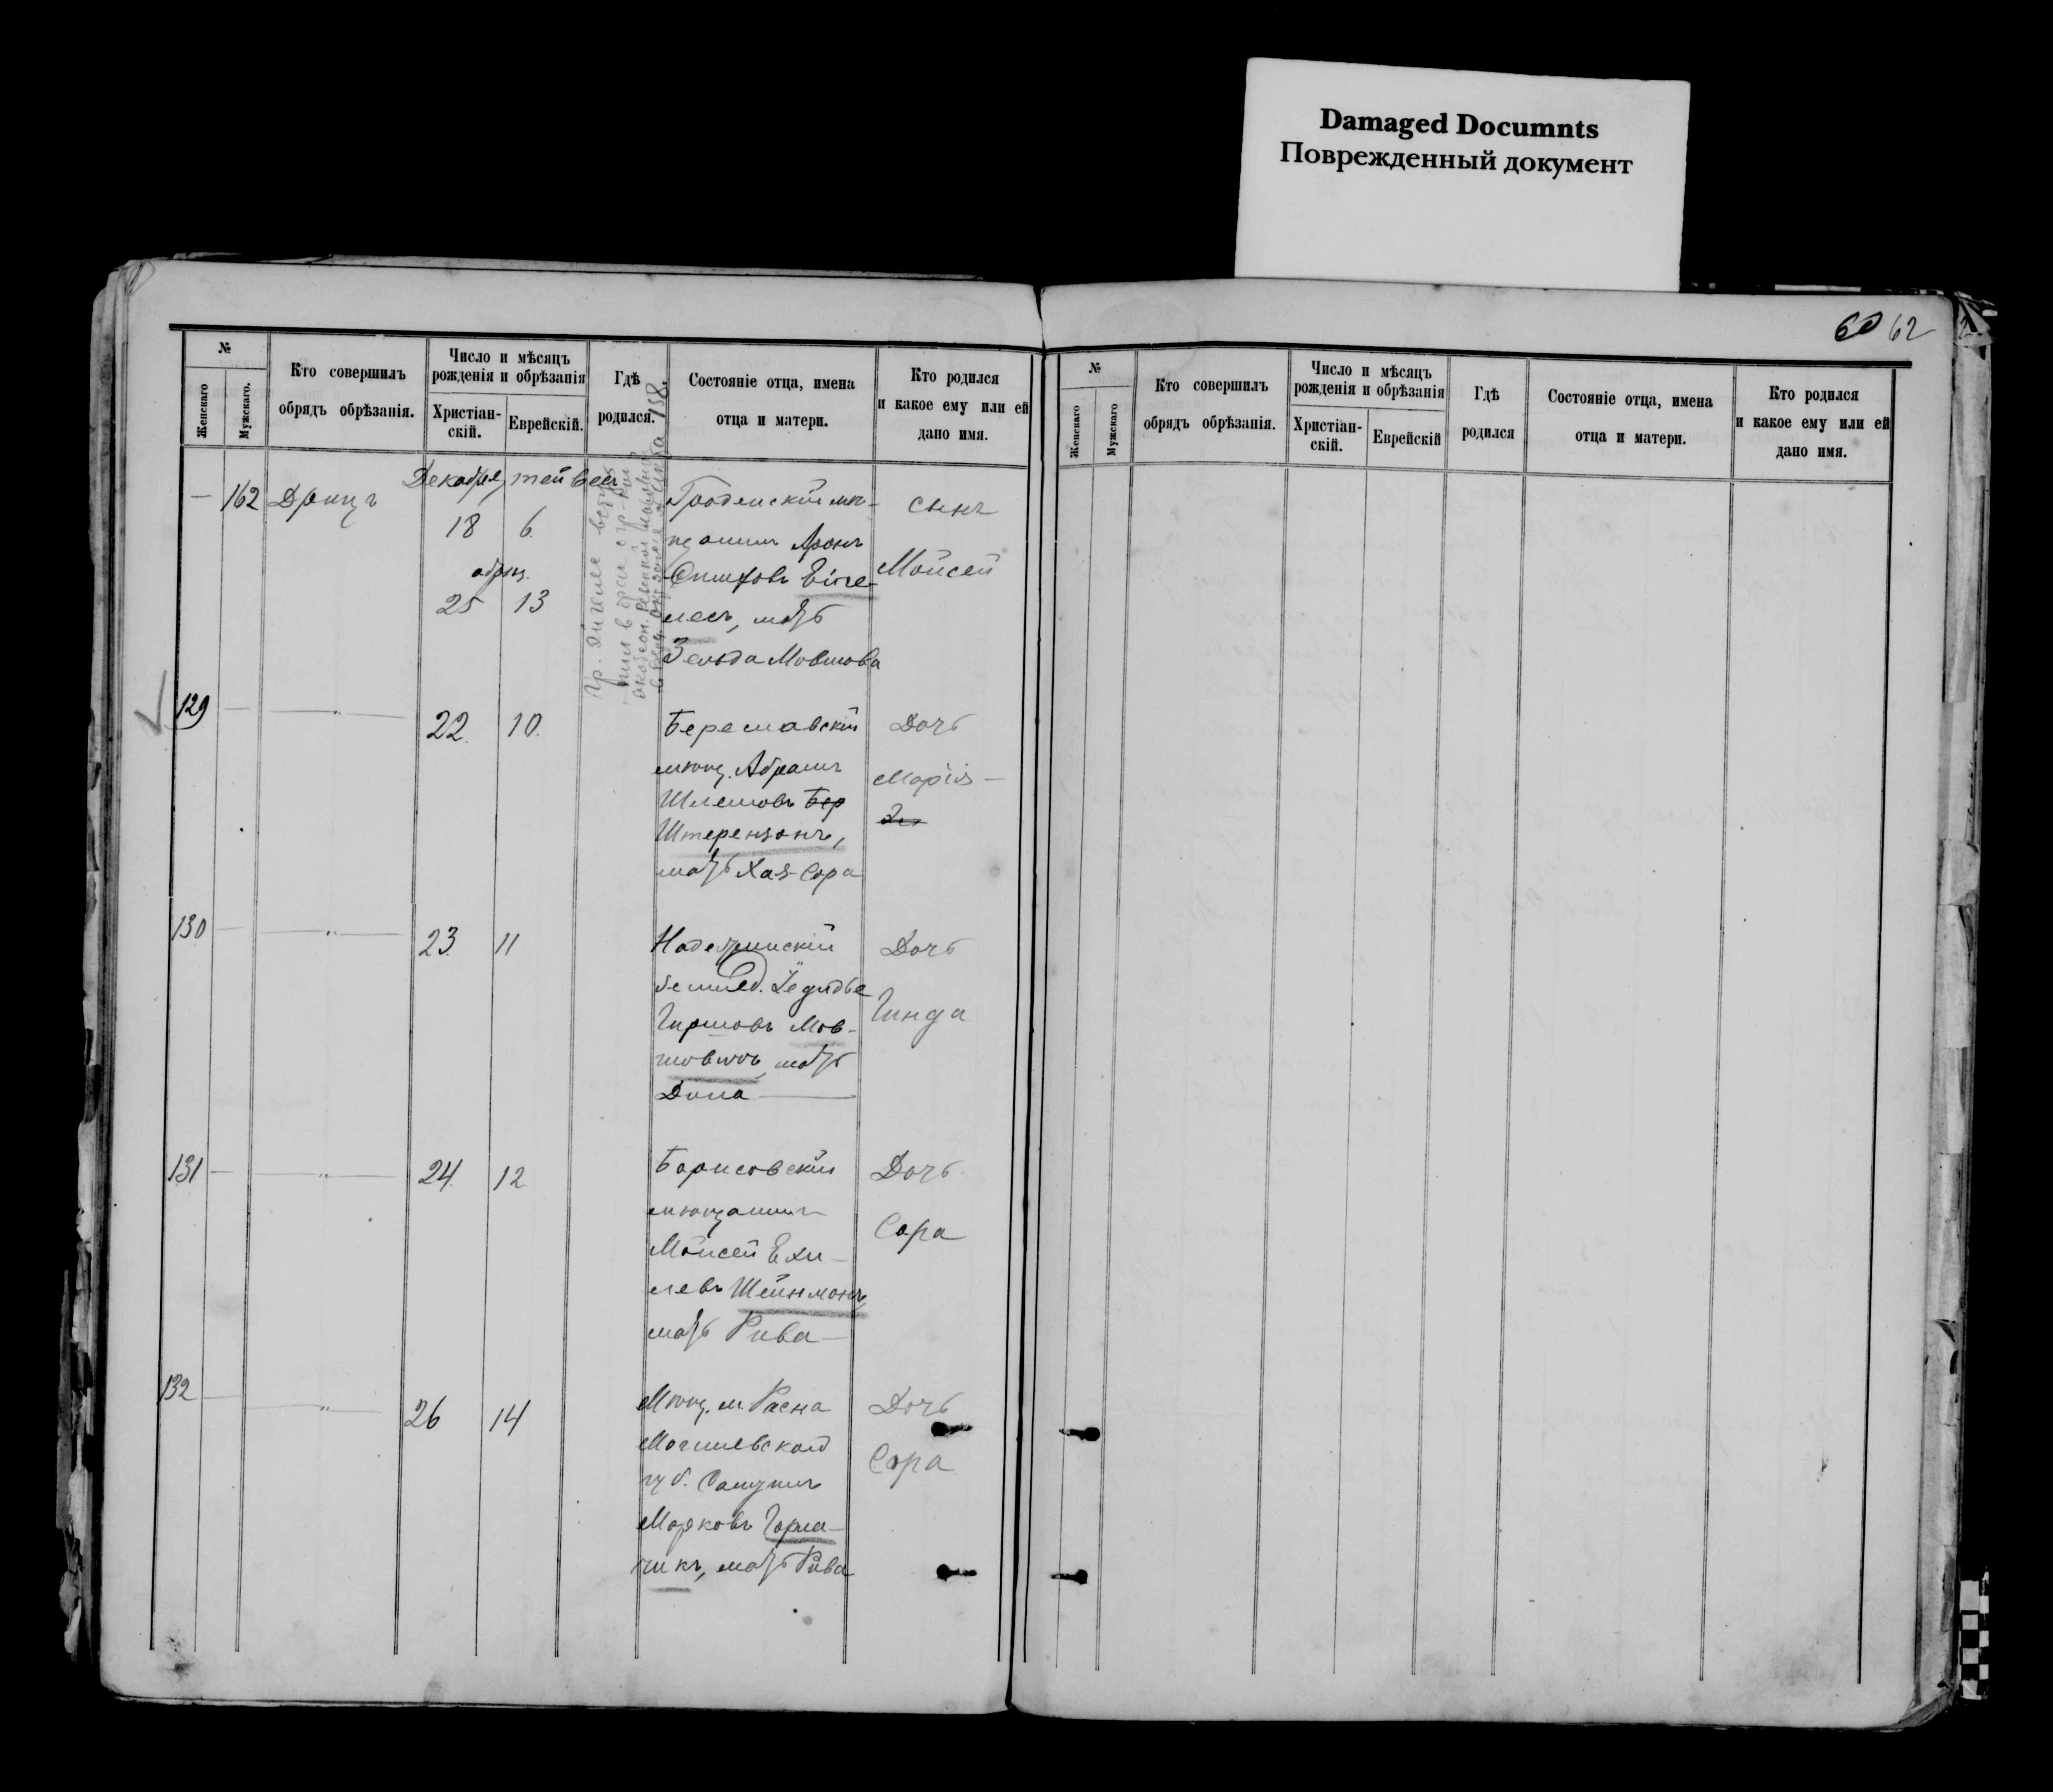 Damaged Documnts
Поврежденный документ
60 62
№
Женскаго
Мужскаго.
Кто совершилъ
обрядъ обрѣзанія.
Число и мѣсяцъ
рожденія и обрѣзанія
Христіан-
скій.
Еврейскій.
Гдѣ
родился.
Состояніе отца, имена
отца и матери.
Кто родился
и какое ему или ей
дано имя.
— 162
Декабря
18 6.
обрѣз.
25 13
мѣ-
щанинъ Аронъ
мать
Зельда Мовшова
сынъ
Моисей
129 — — " —
22. 10.
Бериславскій
мѣщ. Абрамъ
Шлемовъ Бер
Штеренzонъ,
мать Хая-Сора
Дочь
Марія —
130 — — " —
23. 11
Гиршовъ Мов-
шовичъ, мать
Дина —
Дочь
Гинда
131 — — " —
24. 12.
Борисовскій
мѣщанинъ
Моисей Ехи-
левъ Шейнманъ,
мать Рива —
Дочь
Сора
132 — — " —
26 14
Мѣщ. м. Расна
Могилевской
губ.
Марковъ Горма-
чикъ, мать Рива
Дочь
Сора
№
Женскаго
Мужскаго
Кто совершилъ
обрядъ обрѣзанія.
Число и мѣсяцъ
рожденія и обрѣзанія
Христіан-
скій.
Еврейскій
Гдѣ
родился
Состояніе отца, имена
отца и матери.
Кто родился
и какое ему или ей
дано имя.